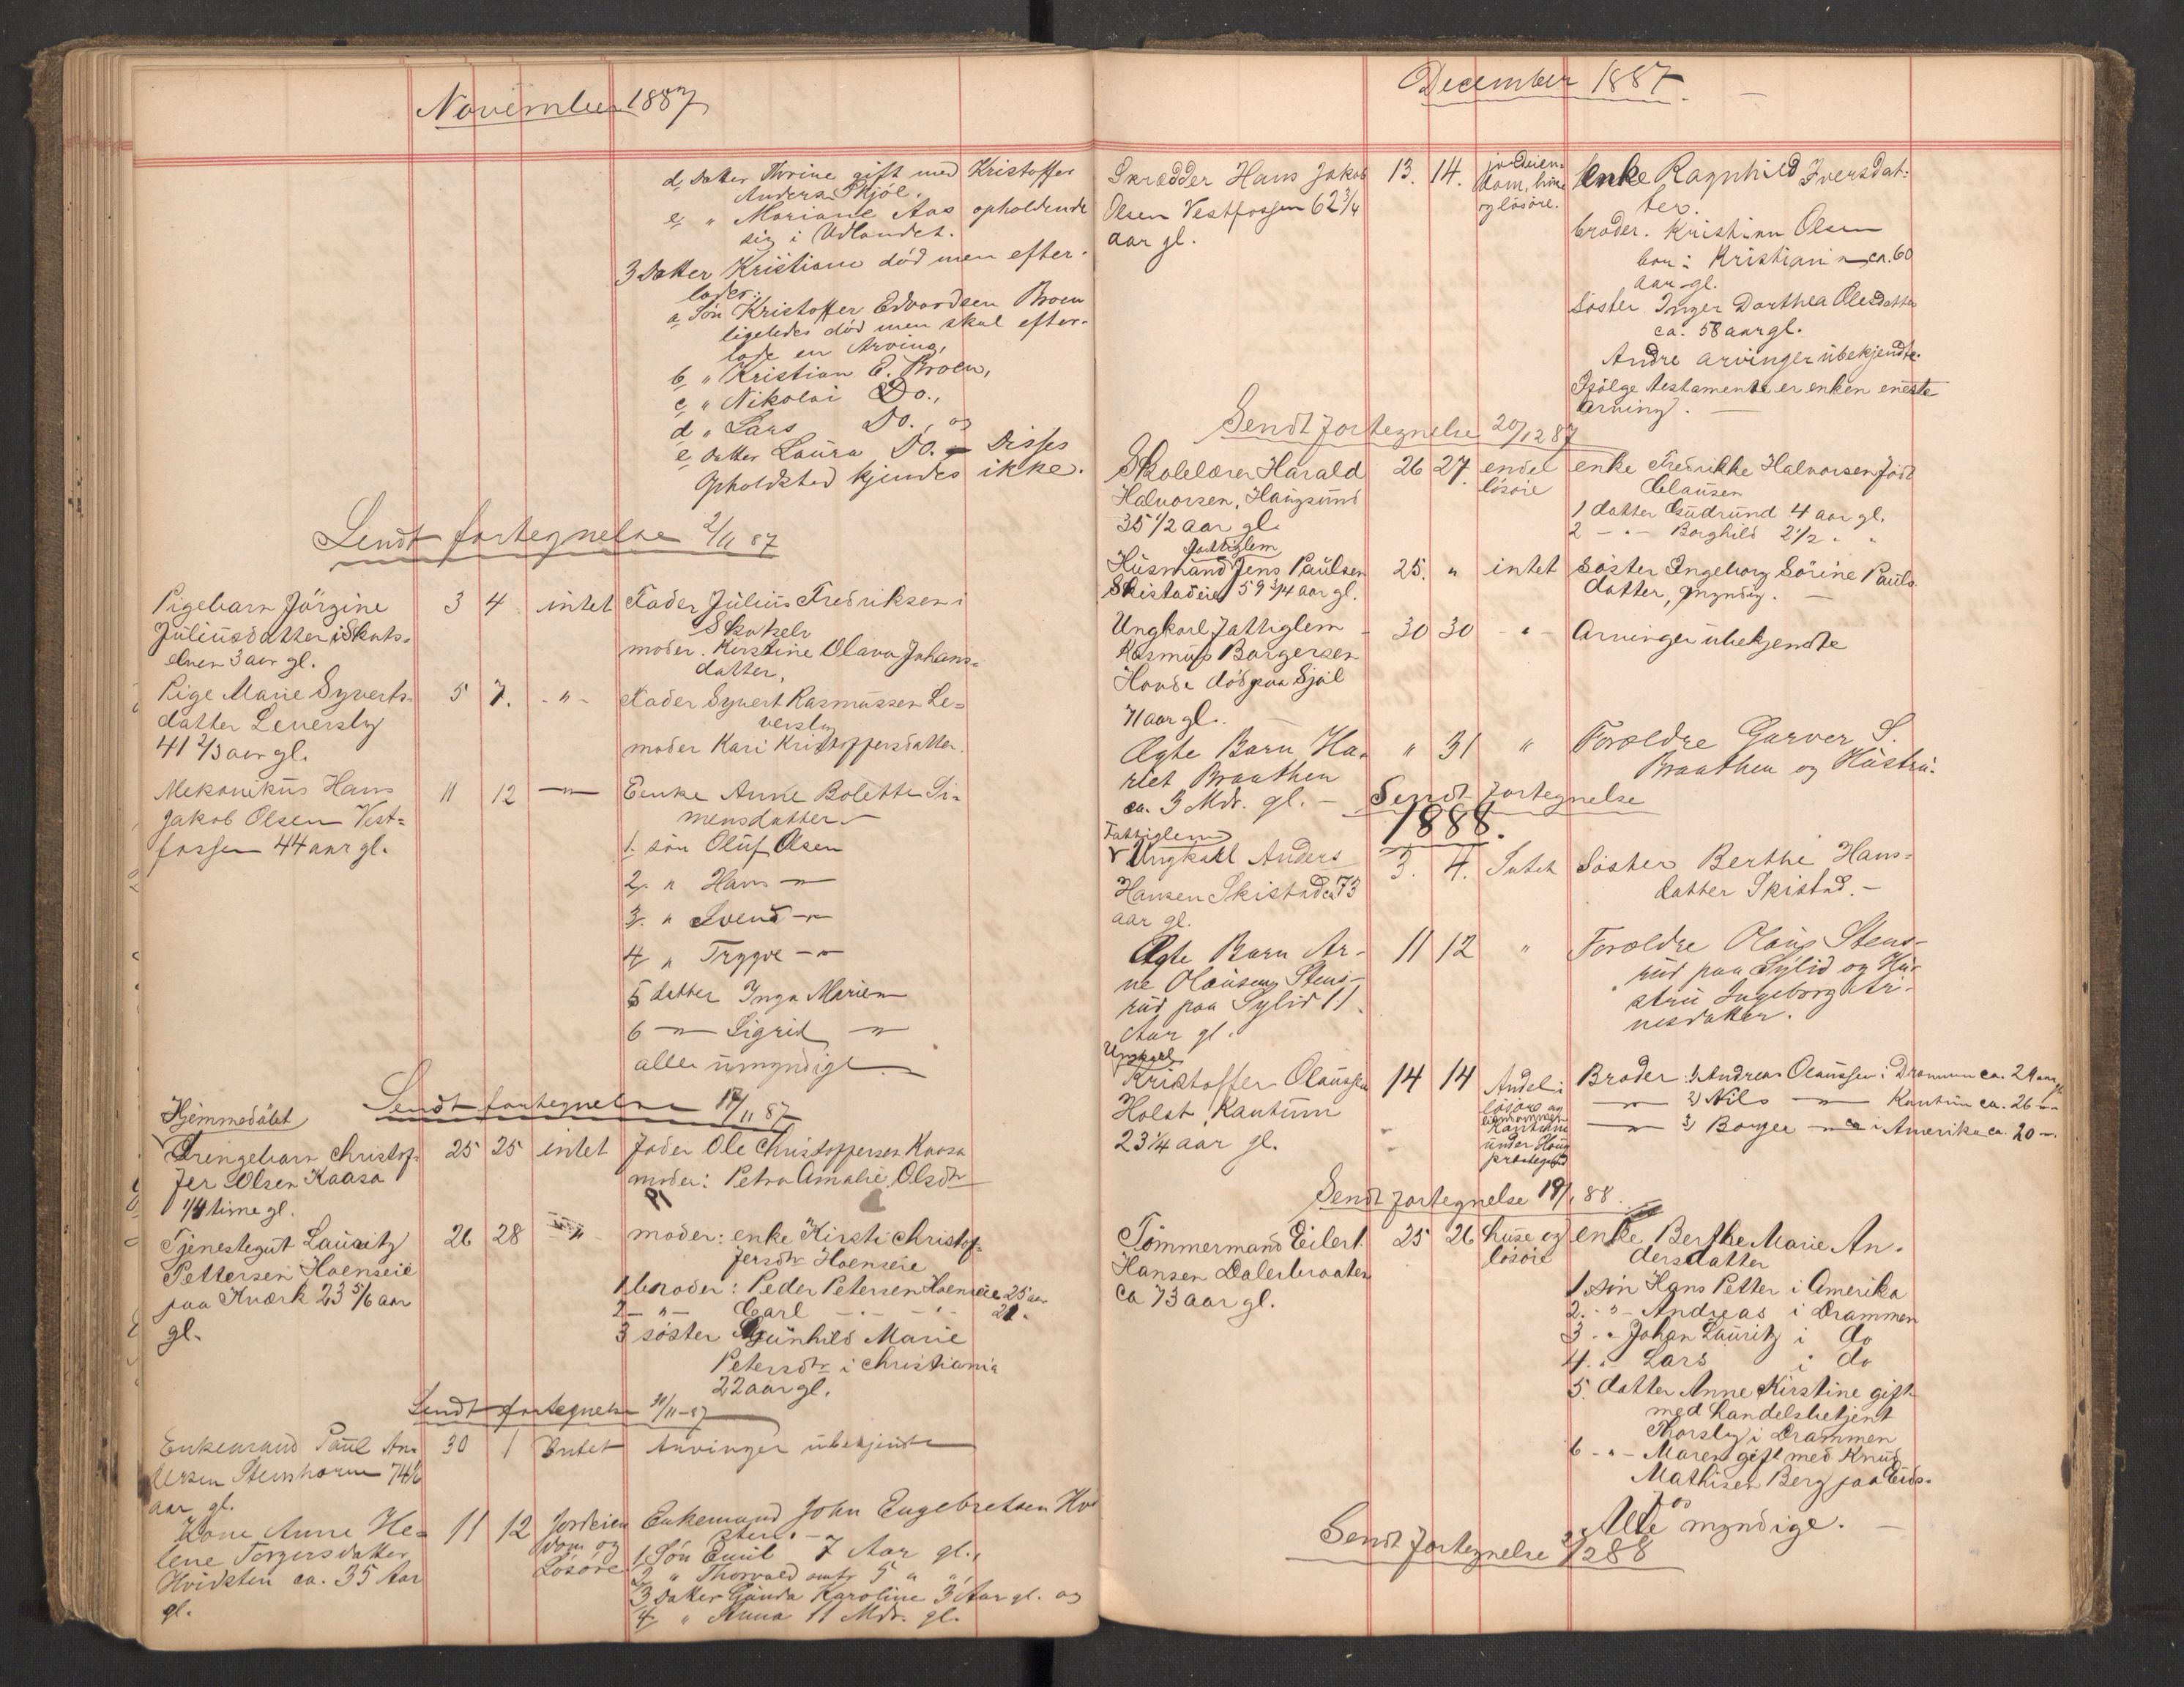 November 1887
d, Datter Thrine gift med Kristoffer
Anders. Skjöl.
e, " Mariane Aas opholdende
sig i Udlandet.
3 Datter Kristiane död men efter-
lader:
a Sön Kristoffer Edvardsen Broen
ligeledes död men skal efter-
lade en Arving,
b, " Kristian E. Broen,
c, " Nikolai Do.,
d " Lars Do., og
e, datter Laura Do. - Disses
Opholdsted kjendes ikke.
Sendt fortegnelse 2/11 87
Pigebarn Jörgine 3 4 intet Fader Julius Fredriksen i
Juliusdatter i Skots- Skotselv
elven 3 aar gl. moder. Kirstine Olava Johans-
datter,
Pige Marie Syverts- 5 7. - " - Fader Syvert Rasmussen Le-
datter Leversby versby
41 2/3 aar gl. moder Kari Kristoffersdatter.
Mekanikus Hans 11 12 - " - Eenke Anne Bolette Si-
Jakob Olsen Vest- mensdatter
fossen 44 aar gl. 1. sön Oluf Olsen
2, " Hans - " -
3, " Svend - " -
4, " Trygve - " -
5 datter Inga Marie - " -
6 - " - Sigrid - " -
alle umyndige
Sendt fortegnelse 17/11 87
Hjemmedöbt
Drengebarn Christof- 25 25 intet fader Ole Christoffersen Kaasa
fer Olsen Kaasa moder: Petra Amalie Olsdtr
1/4 time gl.
Tjenestegut Lauritz 26 28 - " - moder: enke Kirsti Christof-
Pettersen Hoenseie fersdtr Hoenseie
paa Kværk 23 5/6 aar 1 broder: Peder Petersen Hoenseie 25 aar
gl. 2 - " - Carl - " - - " - 21.
3 söster Gunhild Marie
Petersdtr i Christiania
22 aar gl.
Sendt fortegnelse 30/11-87
Enkemand Paul An- 30 1 Intet Arvinger ubekjendte
dersen Stenshorn 74 1/6
aar gl.
Kone Anne He- 11 12 Jordeien Enkemand John Engebretsen Hvid
lene Torgersdatter dom og sten. -
Hvidsten ca. 35 Aar Lösöre 1 Sön Emil 7 Aar gl.,
gl. 2, " Thorvald omtr 5 " "
3 Datter Gunda Karoline 3 Aar gl. og
4, " Anna 11 Mdr. gl.
December 1887.
Skrædder Hans Jakob 13. 14. jordeien- Enke Ragnhild Iversdat-
Olsen Vestfossen 62 3/4 dom, huse ter.
aar gl. og lösöre. broder. Kristian Olsen
bor: Kristiania, ca. 60
aar gl.
söster Inger Dorthea Olesdatter
ca. 58 aar gl.
Andre arvinger ubekjendte.
Ifölge testamente er enken eneste
arving. -
Sendt fortegnelse 20/12 87
Skolelærer Harald 26 27. endel enke Fredrikke Halvorsen född
Halvorsen, Haugsund lösöre Clausen
35 1/2 aar gl. 1 datter Gudrund 4 aar gl.
2 - " - Borghild 2 1/2 " "
fattiglem
Husmand Jens Paulsen 25. " intet Söster Ingeborg Sörine Pauls-
Skistadeie 59 3/4 aar gl. datter, myndig. -
Ungkarl fattiglem 30 30 - " - Arvinger ubekjendte
Rasmus Borgersen
Hovde död paa Sjöl
71 aar gl.
Ægte Barn Ha- " 31 " Forældre Garver S.
riet Braathen Braathen og Hustru.
ca. 3 Mdr. gl. - Sendt fortegnelse
1888.
Fattiglem
Ungkarl Anders 3. 4. Intet Söster Berthe Hans-
Hansen Skistad ca 73 datter Skistad. -
aar gl.
Ægte Barn Ar- 11 12 " Forældre Olaus Stens-
ne Olausen Stens- rud paa Sylid og Hu-
rud paa Sylid 11 stru Ingeborg Ar-
Aar gl. nesdatter.
Ungkarl
Kristoffer Olaussen 14 14 Andel i Broder: 1) Andreas Olaussen i Drammen ca. 29 aar gl
Holst, Kantum lösöre og - " - 2) Nils - " - Kantum ca. 26 - " -
23 1/4 aar gl. eiendommen Kantum - " - 3) Borger - " - i Amerika ca. 20 -.
under Haug
prestegjeld
Sendt fortegnelse 19/1 88.
Tömmermand Eilert 25 26 huse og enke Berthe Marie An-
Hansen Dalerbraaten lösöre dersdatter
ca 73 aar gl. 1. sön Hans Petter i Amerika
2. - " - Andreas i Drammen
3 - " Johan Lauritz i do
4. " - Lars i do
5. datter Anne Kirstine gift
med handelsbetjent
Thorsby i Drammen
6 - " - Maren gift med Knud
Mathisen Berg paa Eids-
fos
Alle myndige. -
Sendt fortegnelse 2/2 88